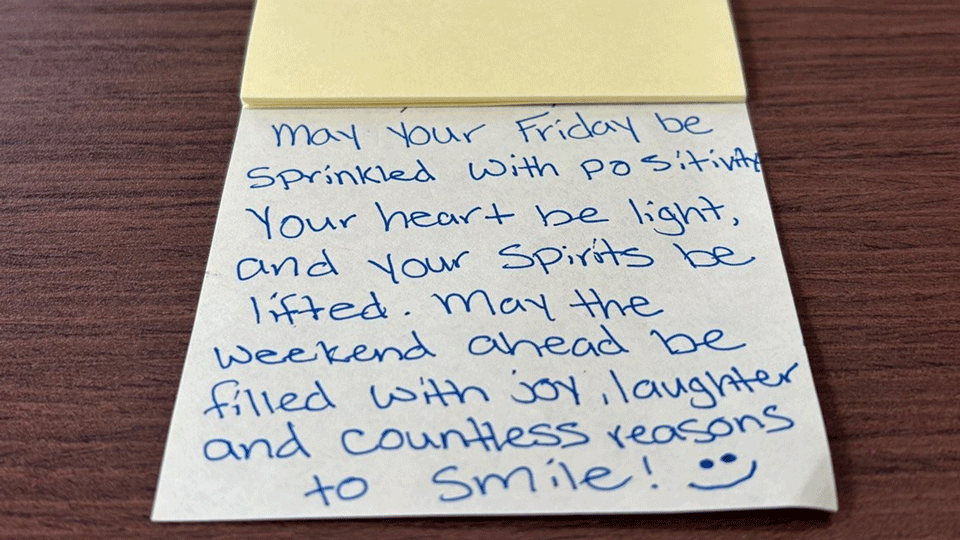 May your Friday be
sprinkled with positivity
Your heart be light,
and your spirits be
lifted. May the
weekend ahead be
filled with joy, laughter
and countless reasons
to smile!